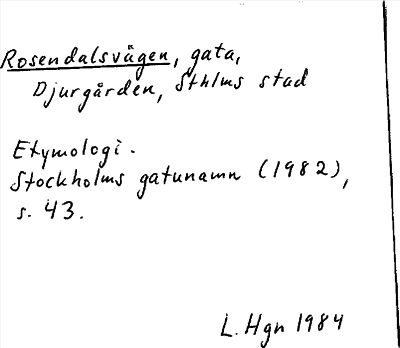 Rosendalsvägen, gata,
Djurgården, Sthlms stad
Etymologi.
Stockholms gatunamn (1982),
s. 43.
L. Hgn 1984